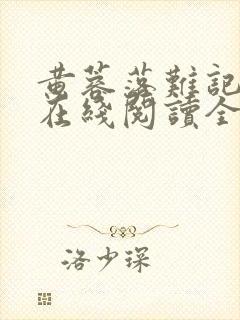 黄蓉落難記
在綫閱讀全
洛少琛